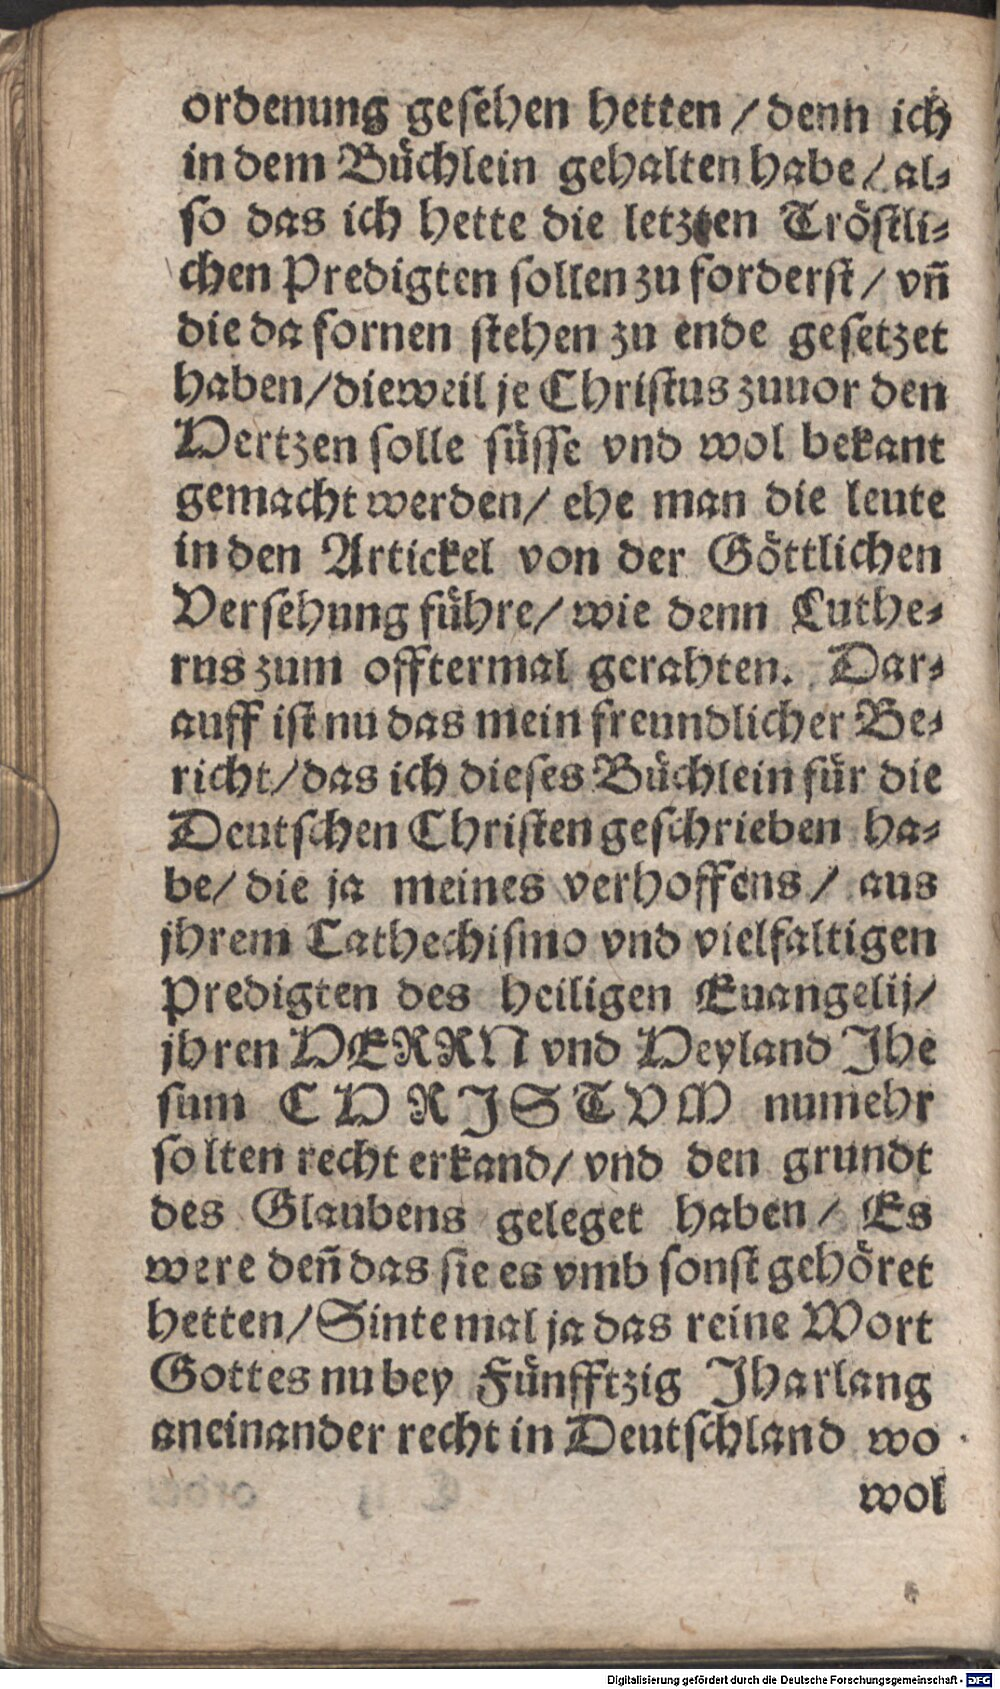 ordenung gesehen hetten / denn ich
in dem Büchlein gehalten habe / al-
so das ich hette die letzten Tröstli-
chen Predigten sollen zu forderst / vñ
die da fornen stehen zu ende gesetzet
haben / dieweil je Christus zuuor den
Hertzen solle süsse vnd wol bekant
gemacht werden / ehe man die leute
in den Artickel von der Göttlichen
Versehung führe / wie denn Luthe-
rus zum offtermal gerahten. Dar-
auff ist nu das mein freundlicher Be-
richt / das ich dieses Büchlein für die
Deutschen Christen geschrieben ha-
be / die ja meines verhoffens / aus
jhrem Cathechismo vnd vielfaltigen
Predigten des heiligen Euangelij /
jhren HERRN vnd Heyland Jhe
sum CHRISTVM numehr
solten recht erkand / vnd den grundt
des Glaubens geleget haben / Es
were deñ das sie es vmb sonst gehöret
hetten / Sintemal ja das reine Wort
Gottes nu bey Fünfftzig Jharlang
aneinander recht in Deutschland wo
wol
Digitalisierung gefördert durch die Deutsche Forschungsgemeinschaft - DFG